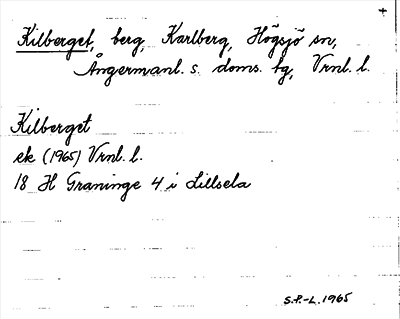 +
Kilberget, berg, Karlberg, Högsjö sn,
Ångermanl. s. doms. tg, Vrnl. l.
Kilberget
ek (1965) Vrnl. l.
18 H Graninge 4 i Lillsela
S.P.-L. 1965